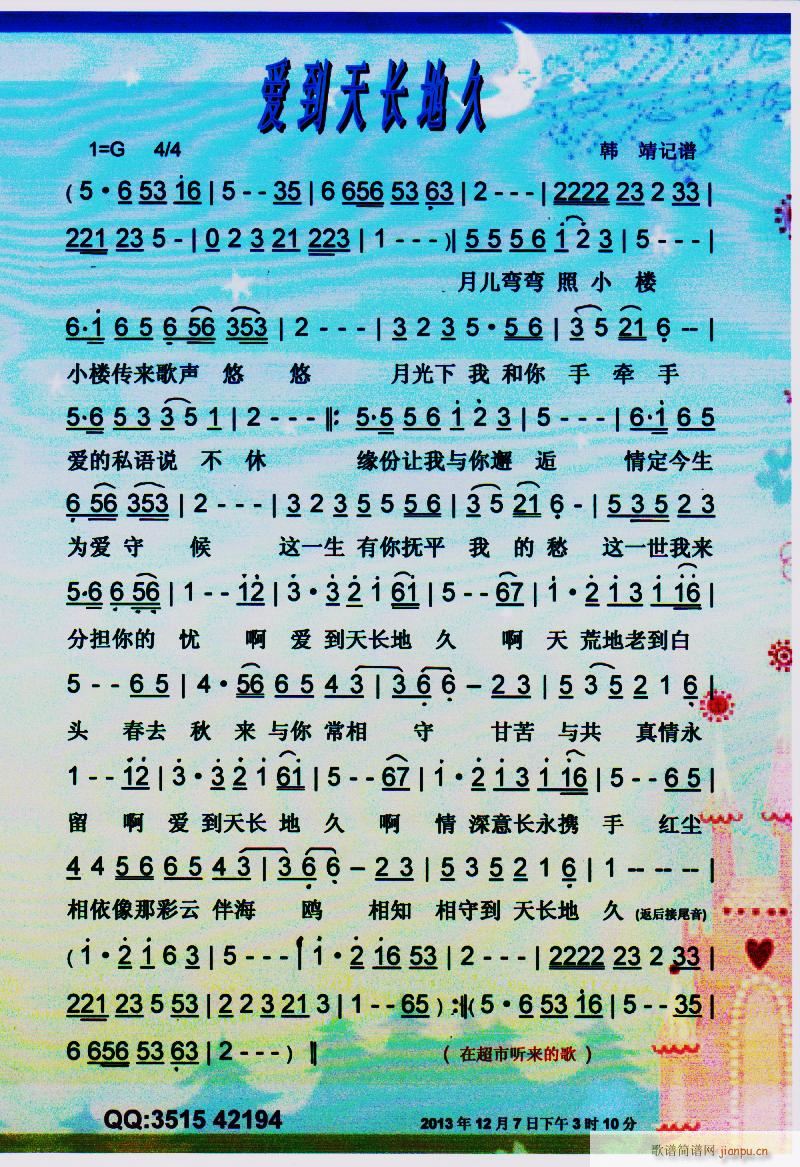 爱到天长地久
1=G 4/4 韩 靖记谱
( 5 · 6 53 16 | 5 - - 35 | 6 656 53 63 | 2 - - - | 2222 23 2 33 |
221 23 5 - | 0 2 3 21 223 | 1 - - - ) || 5 5 5 6 1 2 3 | 5 - - - |
月儿弯弯 照 小 楼
6·1 6 5 6 56 353 | 2 - - - | 3 2 3 5 · 5 6 | 3 5 21 6 -- |
小楼传来歌声 悠 悠 月光下 我 和你 手 牵 手
5·6 5 3 3 5 1 | 2 - - - ||: 5·5 5 6 1 2 3 | 5 - - - | 6·1 6 5
爱的私语说 不 休 缘份让我与你邂 逅 情定今生
6 56 353 | 2 - - - | 3 2 3 5 5 5 6 | 3 5 21 6 - | 5 3 5 2 3
为爱 守 候 这一生 有你抚平 我 的 愁 这一世我来
5·6 6 56 | 1 - - 12 | 3 · 3 2 1 61 | 5 - - 67 | 1 · 2 1 3 1 16 |
分担你的 忧 啊 爱 到天长地 久 啊 天 荒地老到白
5 - - 6 5 | 4 · 56 6 5 4 3 | 3 6 6 - 2 3 | 5 3 5 2 1 6 |
头 春去 秋 来 与你 常相 守 甘苦 与共 真情永
1 - - 12 | 3 · 3 2 1 61 | 5 - - 67 | 1 · 2 1 3 1 16 | 5 - - 6 5 |
留 啊 爱 到天长 地 久 啊 情 深意长永携 手 红尘
4 4 5 6 6 5 4 3 | 3 6 6 - 2 3 | 5 3 5 2 1 6 | 1 -- -- -- |
相依像那彩云 伴海 鸥 相知 相守到 天长地 久 (返后接尾音)
( 1 · 2 1 6 3 | 5 - - - | 1 · 2 16 53 | 2 - - - | 2222 23 2 33 |
221 23 5 53 | 2 2 3 21 3 | 1 - - 65 ) :|| ( 5 · 6 53 16 | 5 - - 35 |
6 656 53 63 | 2 - - - ) || ( 在超市听来的歌 )
QQ:3515 42194 2013 年 12 月 7 日下午 3 时 10 分
歌谱简谱网 jianpu.cn